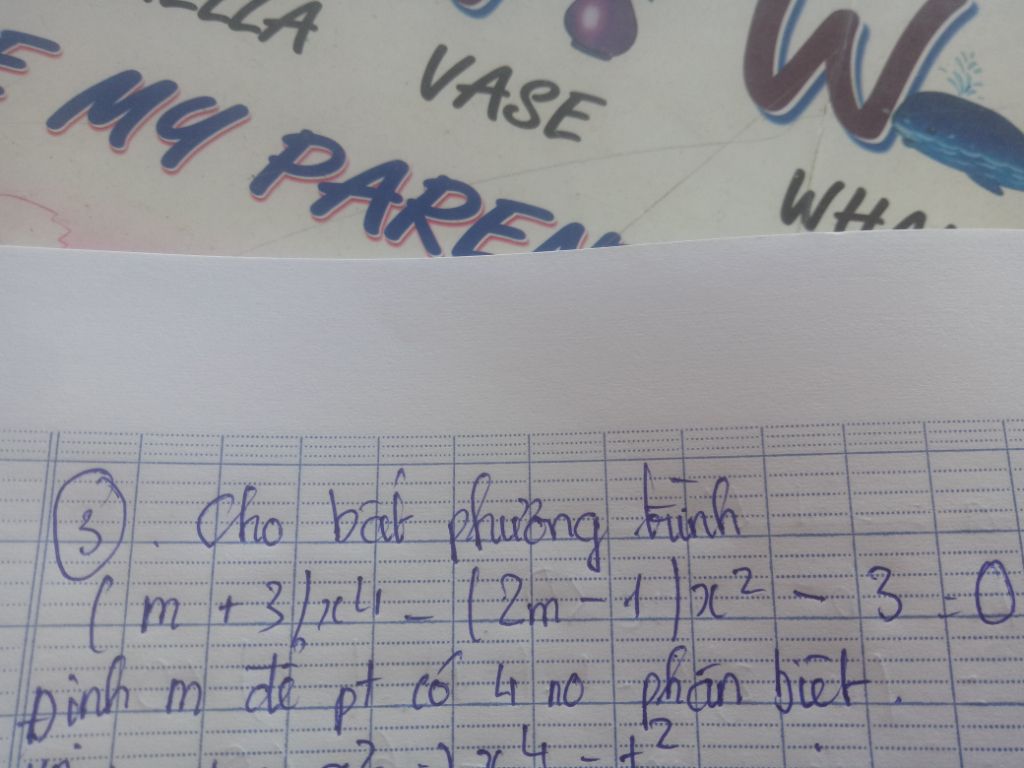 VASE
W
MY PAREN
③. Cho bất phương trình
(m + 3)x⁴ - (2m - 1)x² - 3 = 0
Định m để pt có 4 no phân biệt.
x⁴ = t²